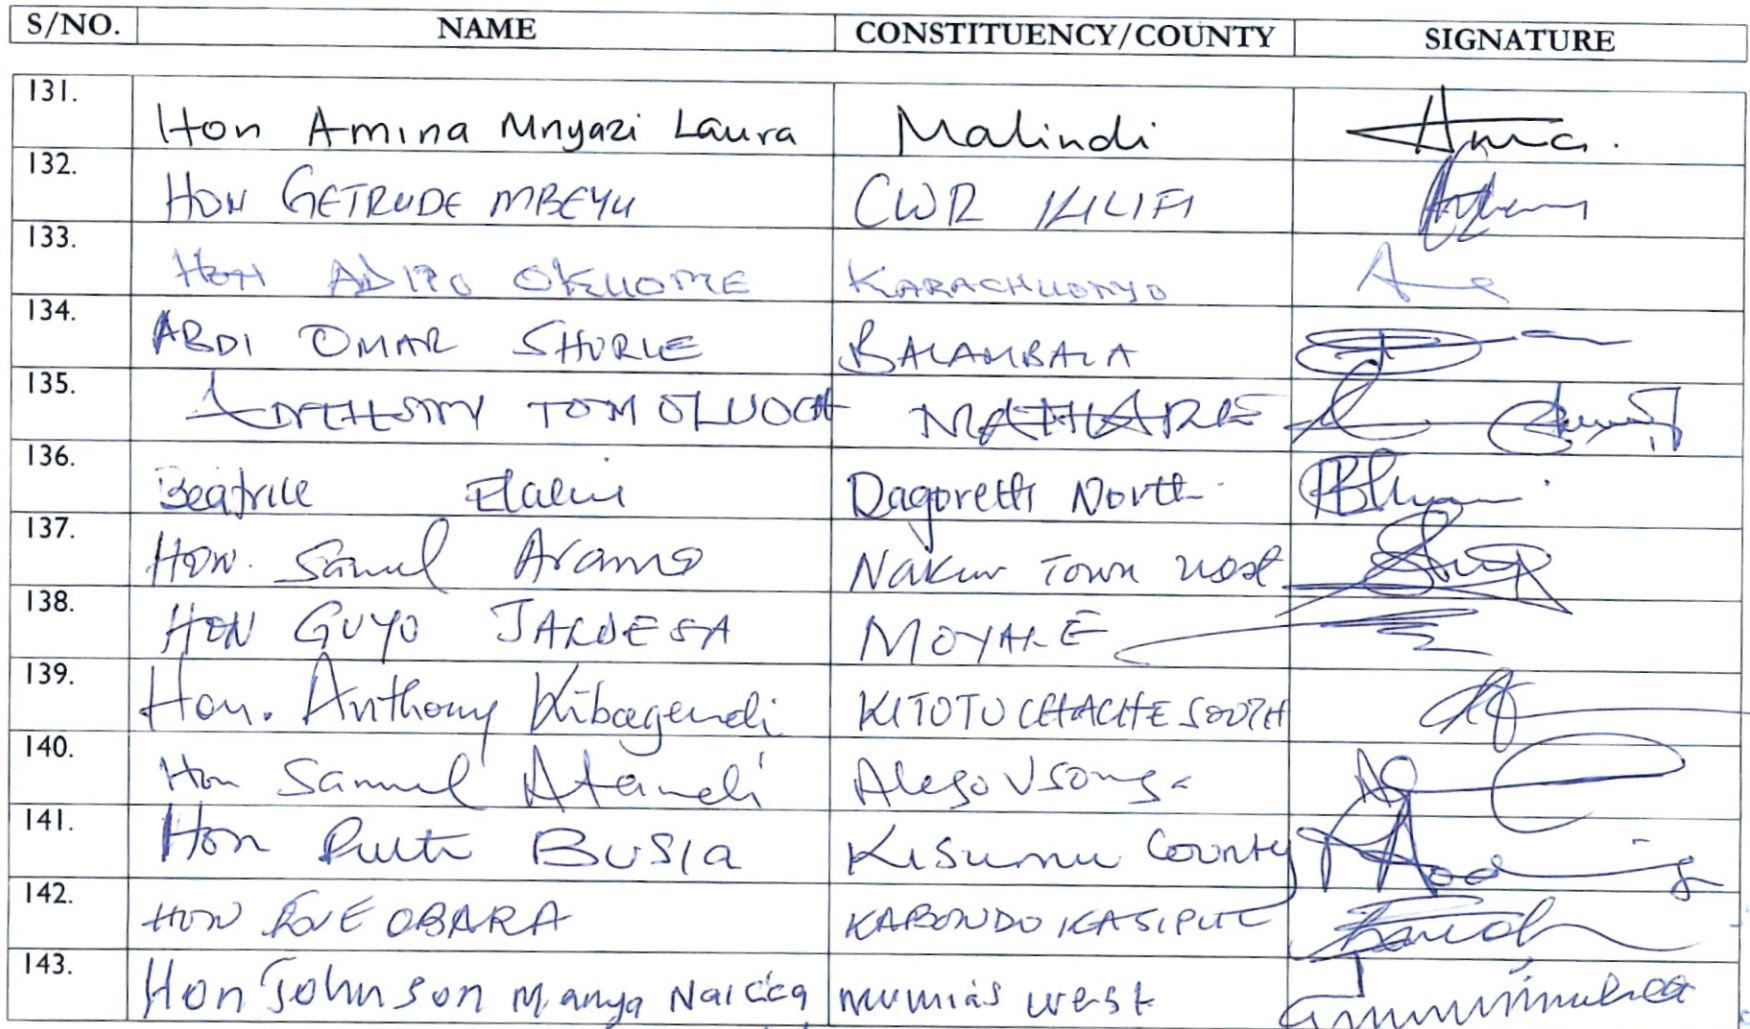 S/NO. NAME CONSTITUENCY/COUNTY SIGNATURE
131. Hon Amina Mnyazi Laura Malindi
132. HON GETRUDE MBEYU CWR KILIFI
133. HON ADIPO OKUOME KARACHUONYO
134. ABDI OMAR SHURIE BALAMBALA
135. ANTHONY TOM OLUOCH MATHARE
136. Beatrice Elachi Dagoretti North
137. Hon. Samuel Arama Nakuru Town West
138. HON GUYO JALDESA MOYALE
139. Hon. Anthony Kibagendi KITUTU CHACHE SOUTH
140. Hon Samuel Atandi Alego Usonga
141. Hon Ruth BUSIA Kisumu County
142. HON EVE OBARA KABONDO KASIPUL
143. Hon Johnson Manya Naicca mumias west